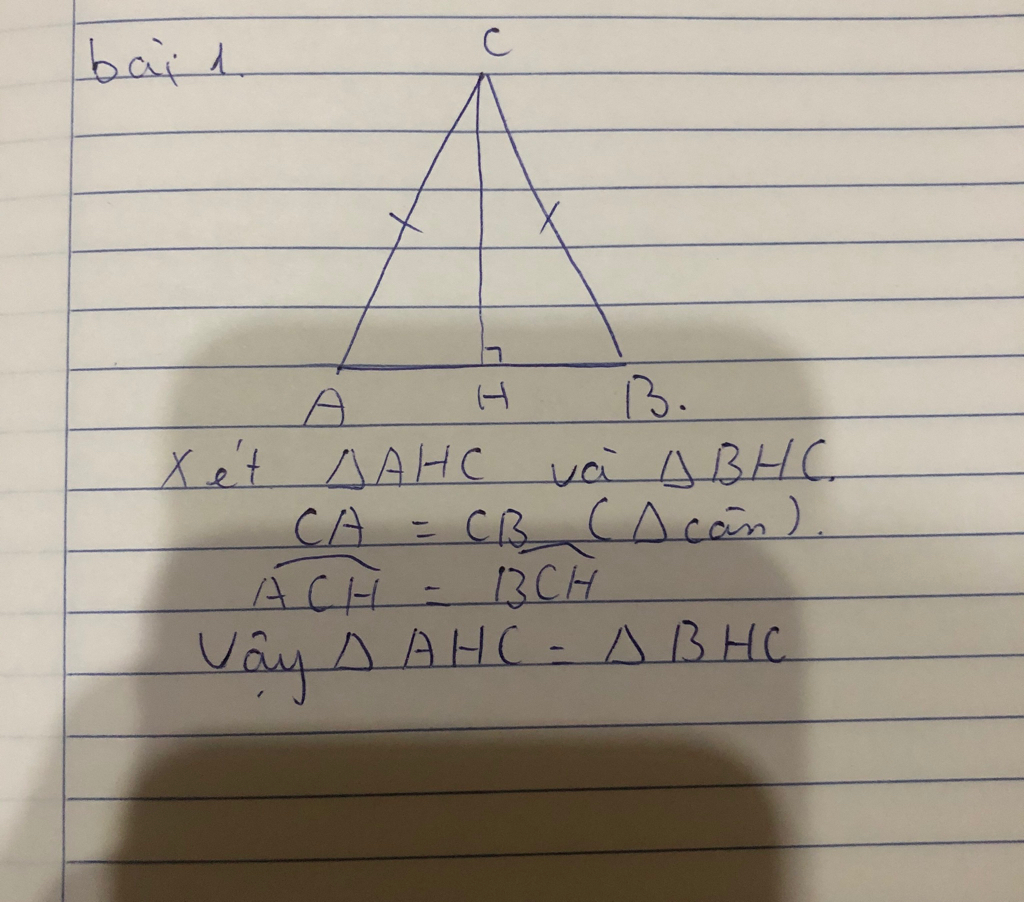 bài 1.
C
A H B.
Xét ΔAHC và ΔBHC.
CA = CB (Δ cân).
\widehat{ACH} = \widehat{BCH}
Vậy Δ AHC = Δ BHC